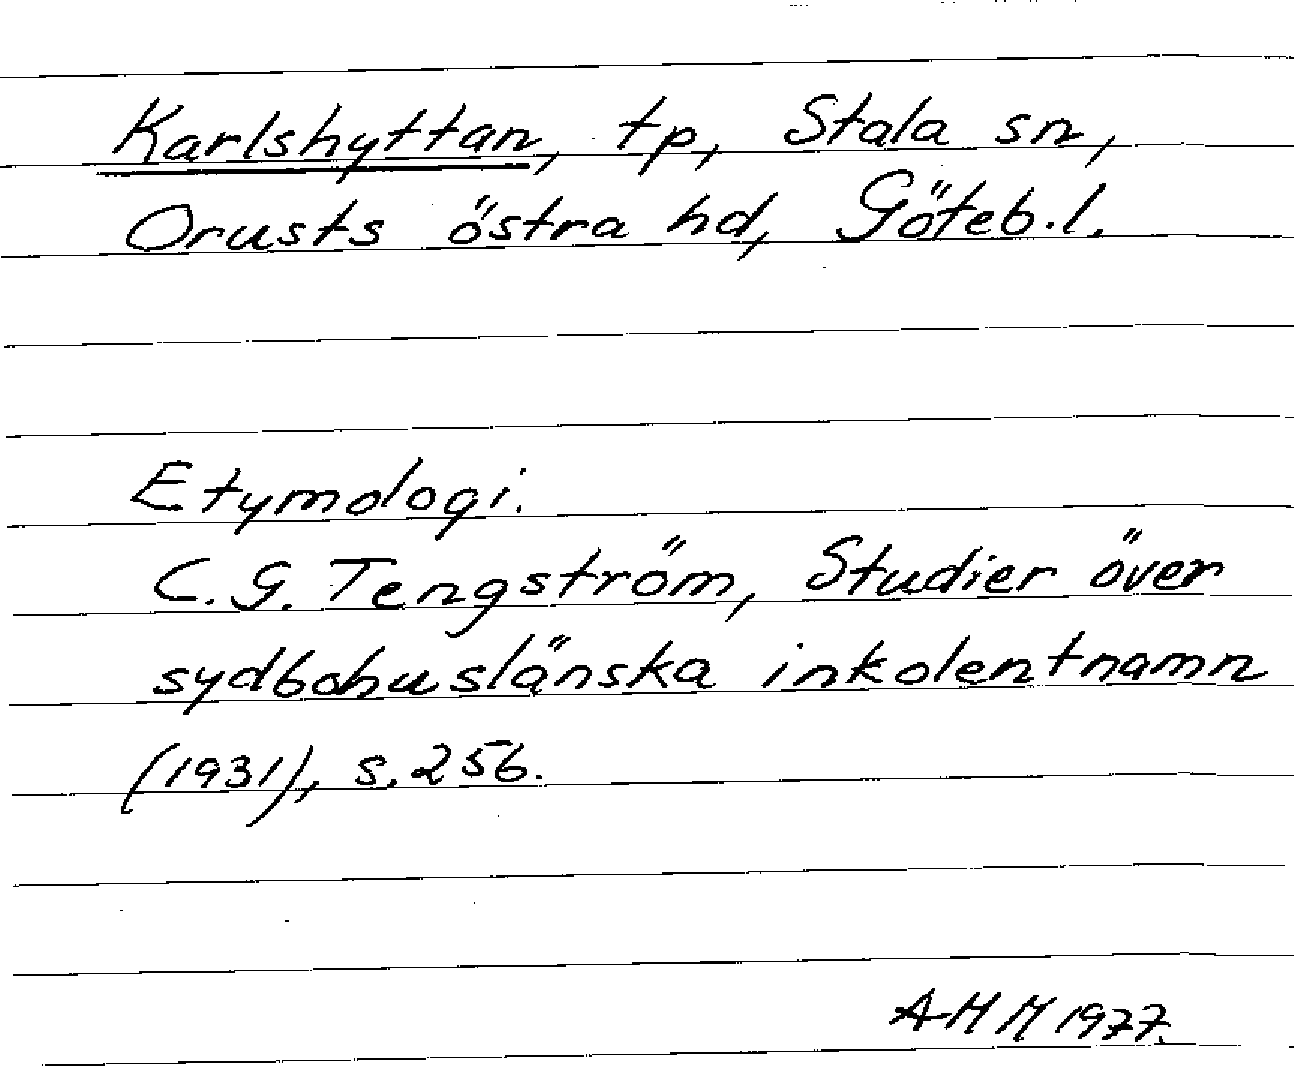 Karlshyttan, tp, Stala sn,
Orusts östra hd, Göteb.l.
Etymologi.
C.G. Tengström, Studier över
sydbohuslänska inkolentnamn
(1931), s. 256.
AHM 1977.